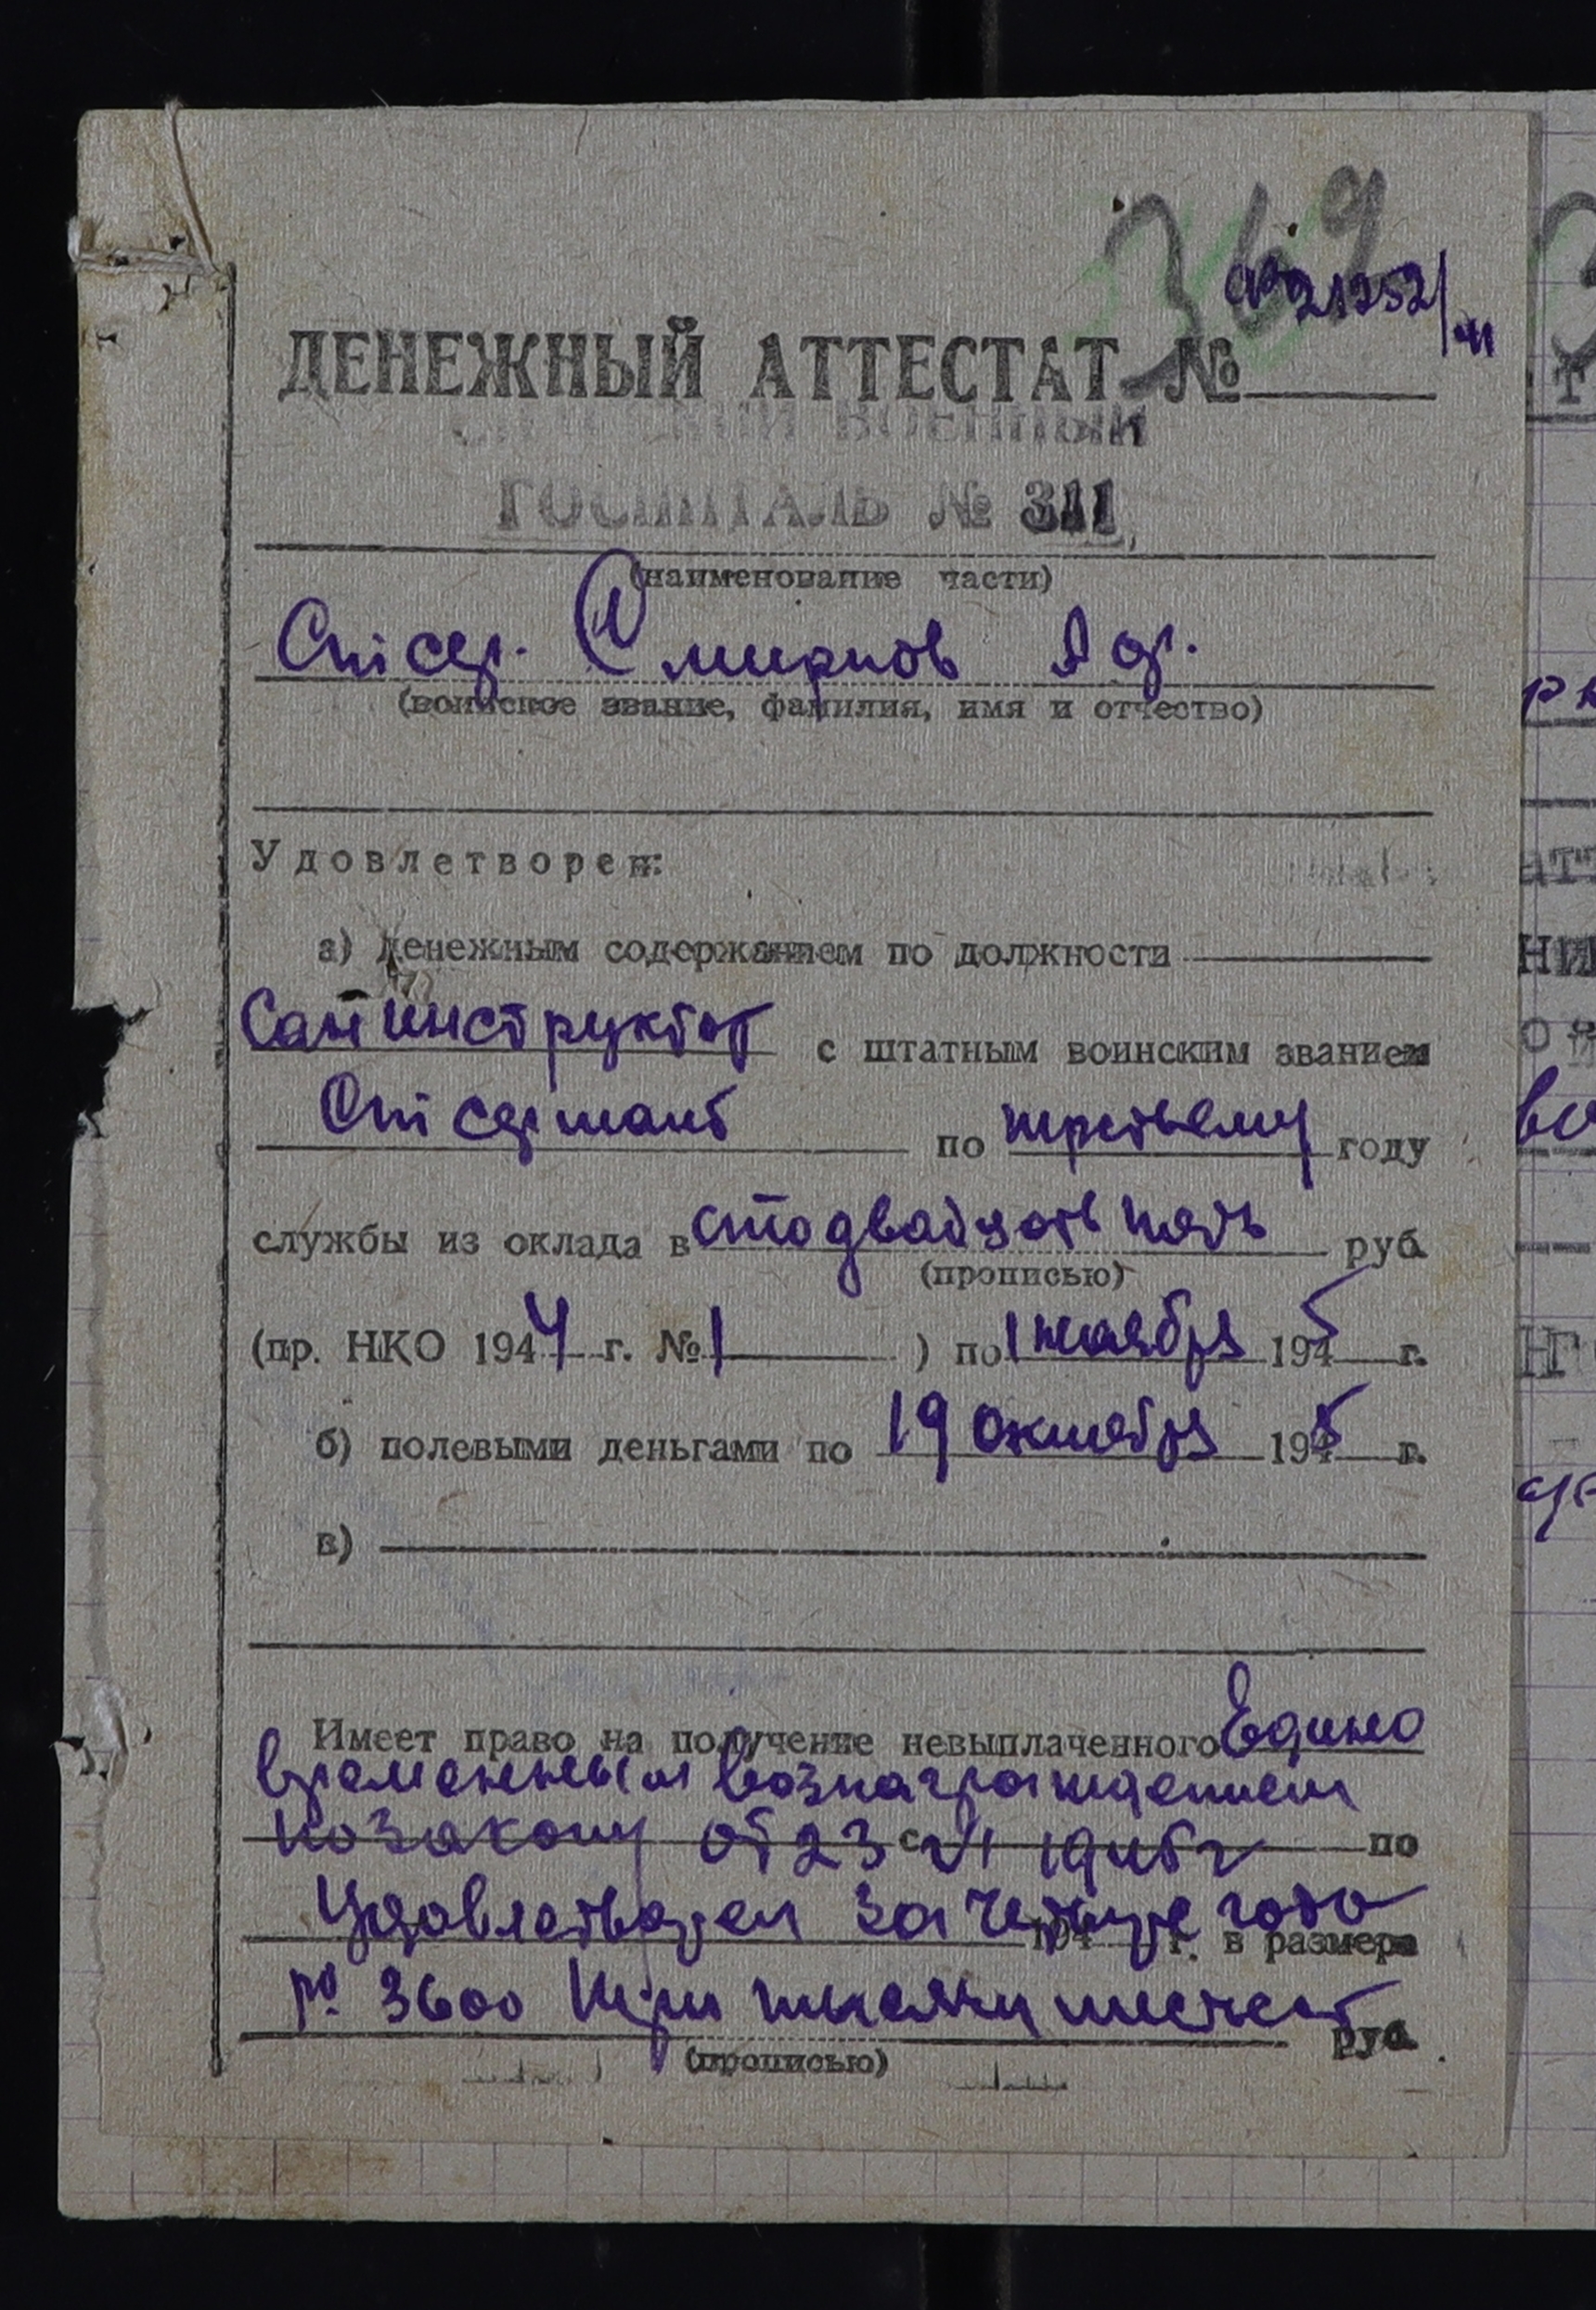 369
ДЕНЕЖНЫЙ АТТЕСТАТ №
ВОЕННЫЙ
ГОСПИТАЛЬ № 311
(наименование части)
Ст сер. Смирнов
(воинское звание, фамилия, имя и отчество)
Удовлетворен:
а) денежным содержанием по должности
Санинструктор с штатным воинским званием
Ст сержант по третьему году
службы из оклада в сто двадцать пять руб.
(прописью)
(пр. НКО 1944 г. № 1 ) по 1 ноября 1945 г.
б) полевыми деньгами по 19 октября 1945 г.
в)
Имеет право на получение невыплаченного Едино
временным вознаграждением
по закону от 23 с VI 1945 г по
Удовлетворен за четыре года
194 г. в размере
3600 три тысячи шестьсот руб.
(прописью)